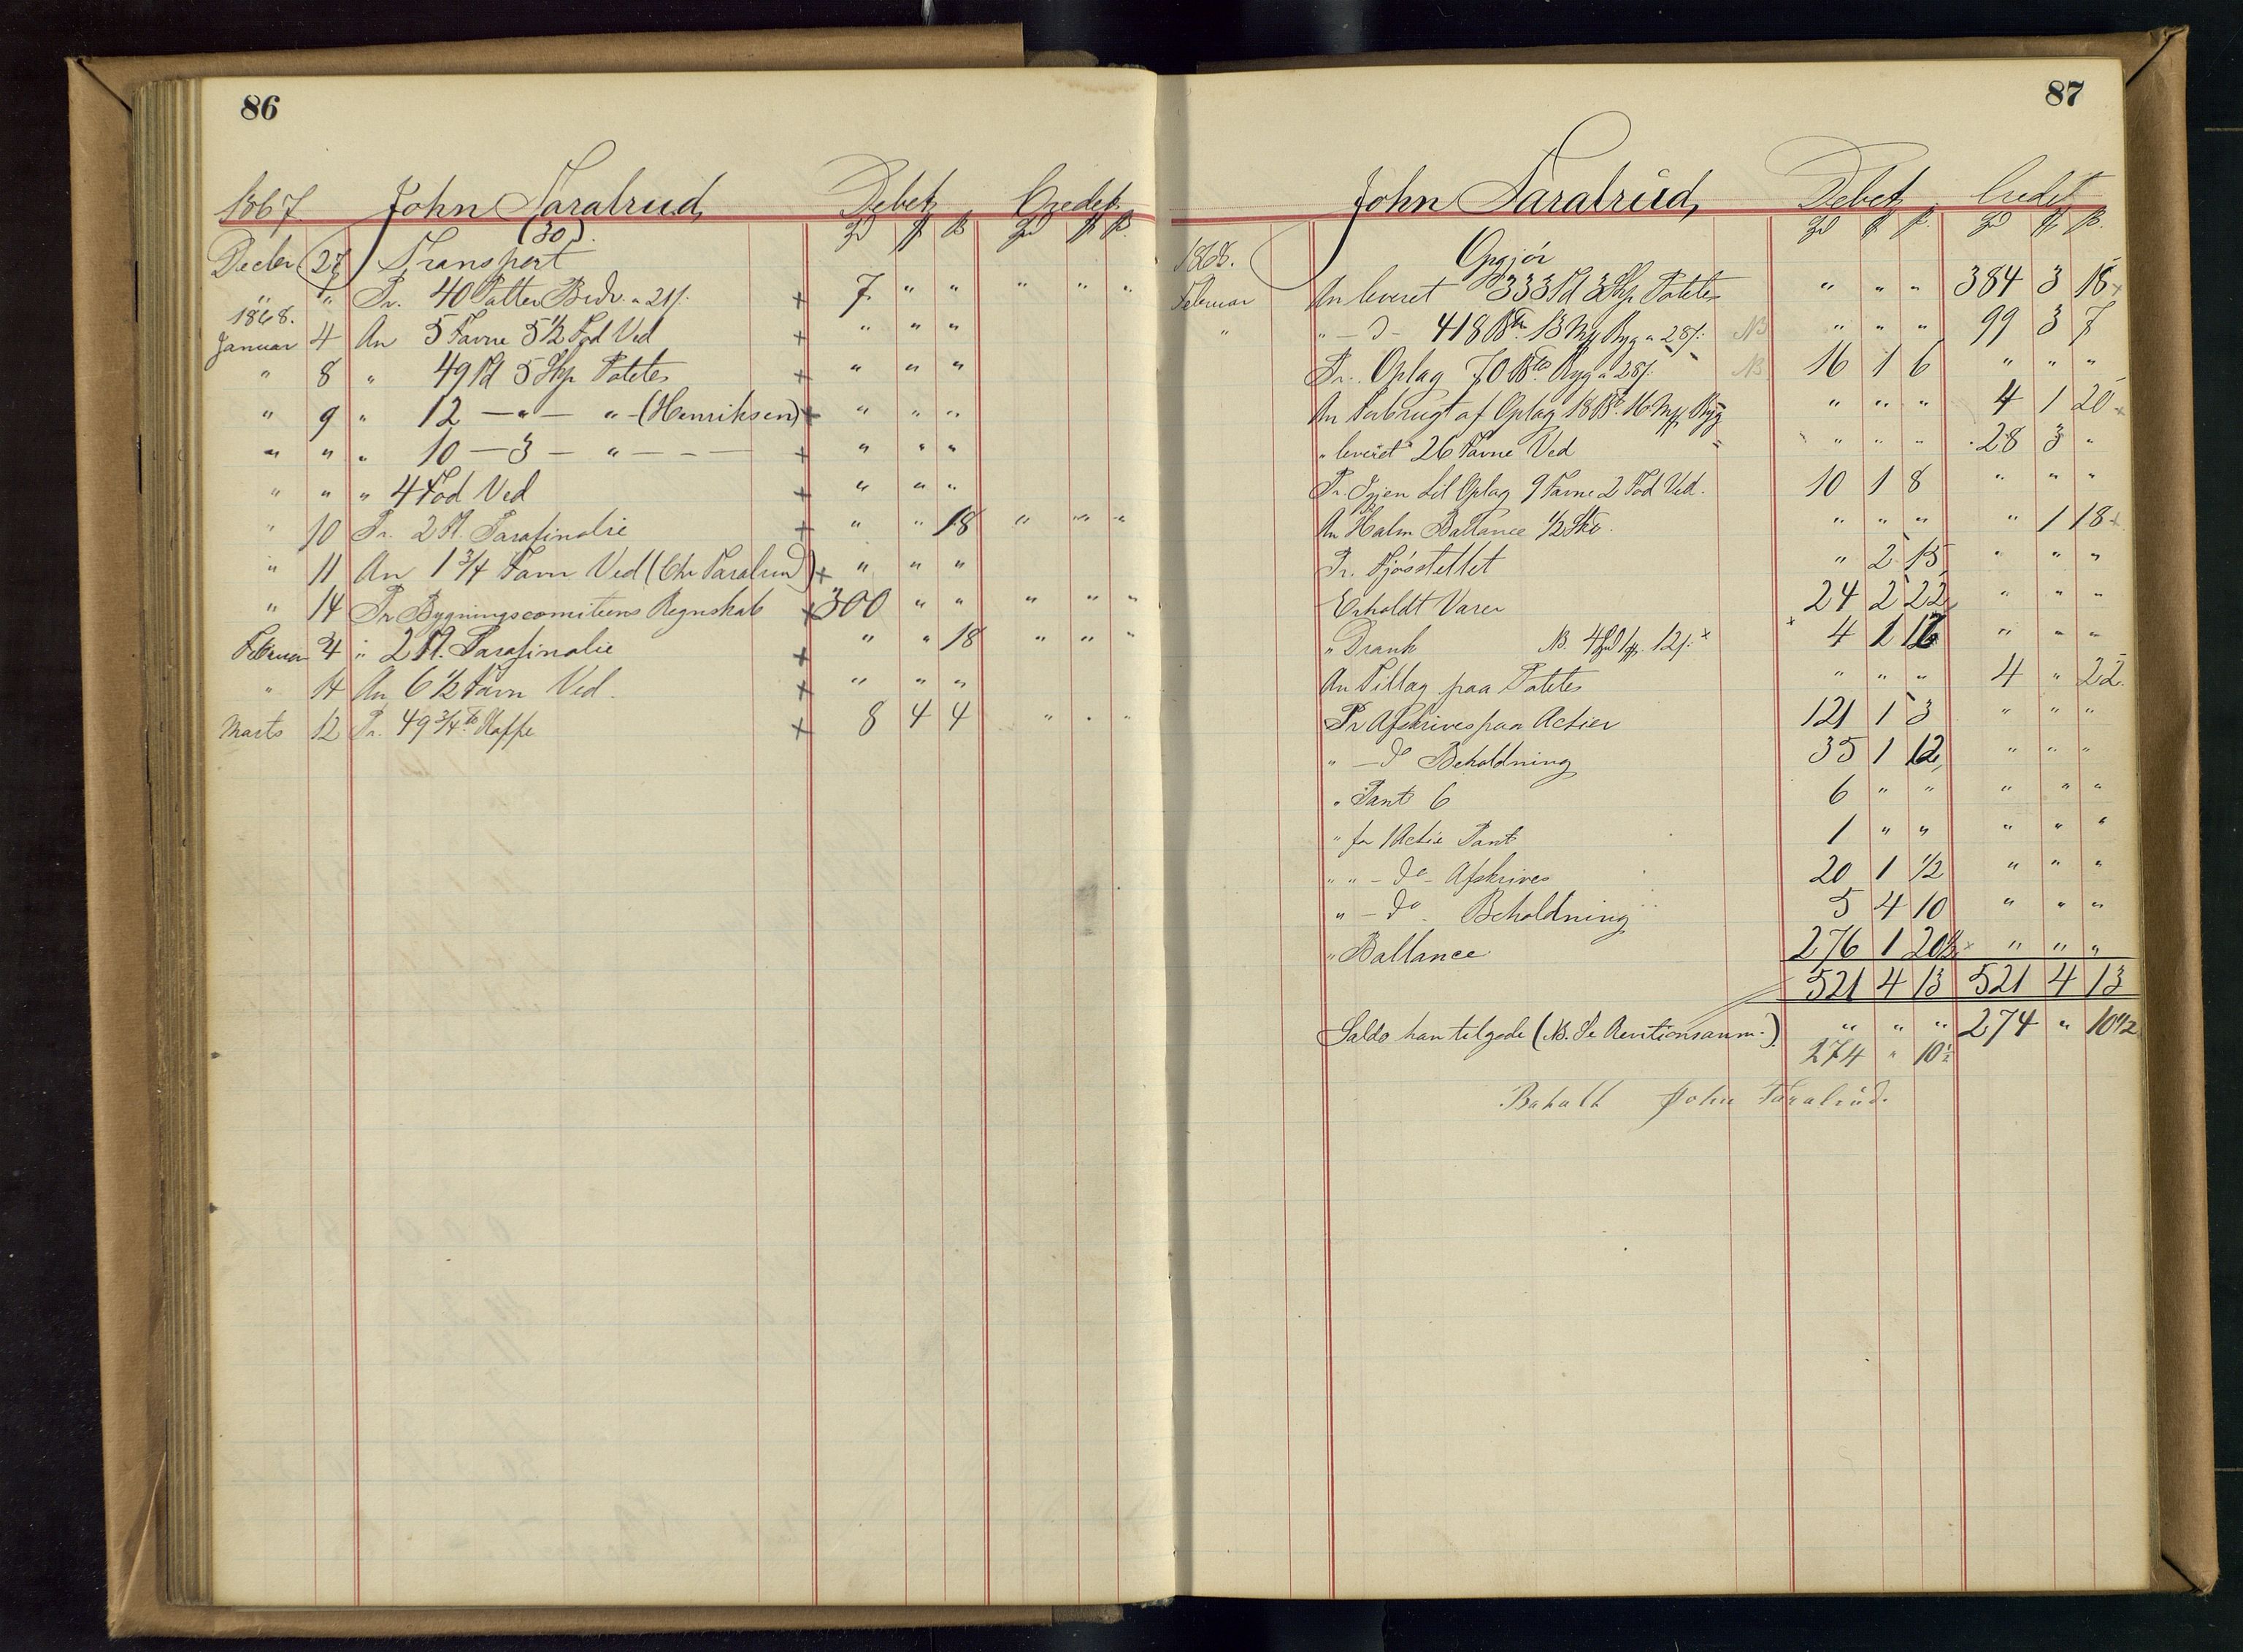 86
1867 John Taralrud, Debet Credit
(30).
Decbr 27 Transport
" " Pr. 40 Potter Brdv. a 21/. + 7 " " " " "
1868.
Januar 4 An 5 Favne 5 1/2 Fod Ved + " " "
" 8 " 49 Td 5 Skp Potetes + " " "
" 9 " 12 — " — " - (Henriksen) + " " "
" " " 10 — 3 — " — — — + " " "
" " " 4 Fod Ved + " " "
" 10 Pr. 2 Pl. Parafinolie + " " 18 " " "
" 11 An 1 3/4 Favn Ved (Chr Taralrud) + " " "
" 14 Pr Bygningscomiteens Regnskab + 300 " " " " "
Februar 4 " 2 Pl. Parafinolie + " " 18 " " "
" 14 An 6 1/2 Favn Ved. + " " "
Marts 12 Pr. 49 3/4 tb Kaffe + 8 4 4 " " "
87
John Taralrud, Debet Credit
1868. Opgjör
Februar An leveret 333 Td 3 Skp Potetes " " " 384 3 18
" " — d — 418 Btr. 13 Mp Byg a 28/: NB " " " 99 3 7
Pr. Oplag 70 Btr Byg a 28/: NB. 16 1 6 " " "
An Forbrugt af Oplag 18 Bt. 16 Mp Byg " " " 4 1 20
" leveret 26 Favne Ved " " " 28 3 "
Pr. Igjen til Oplag 9 Favne 2 Fod Ved. 10 1 8 " " "
An Halm Ballance 1/2 Sko. " " " " 1 18
Pr. Fjösstellet " 2 15 " " "
Erholdt Varer 24 2 22 " " "
" Drank NB. 4 Spd 1 12/. 4 1 12 " " "
An Tillæg paa Potetes " " " 4 " 22.
Pr Afskrives paa Actier 121 1 3 " " "
" — do Beholdning 35 1 12 " " "
" Pant 6 6 " " " " "
" for 1 Actie Pant 1 " " " " "
" " — do - Afskrives 20 1 1/2 " " "
" — do . Beholdning 5 4 10 " " "
" Ballance 276 1 20 1/2 " " "
521 4 13 521 4 13
Saldo han tilgode (NB. Se Revitionsanm:) " " " 274 " 10 1/2
274 " 10 1/2
Betalt John Taralrud.